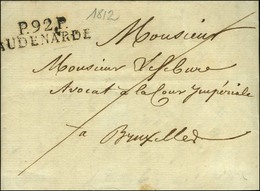 1812
P.92.P.
AUDENARDE
Monsieur
Monsieur Lefebure
Avocat à la Cour Impériale
a Bruxelles